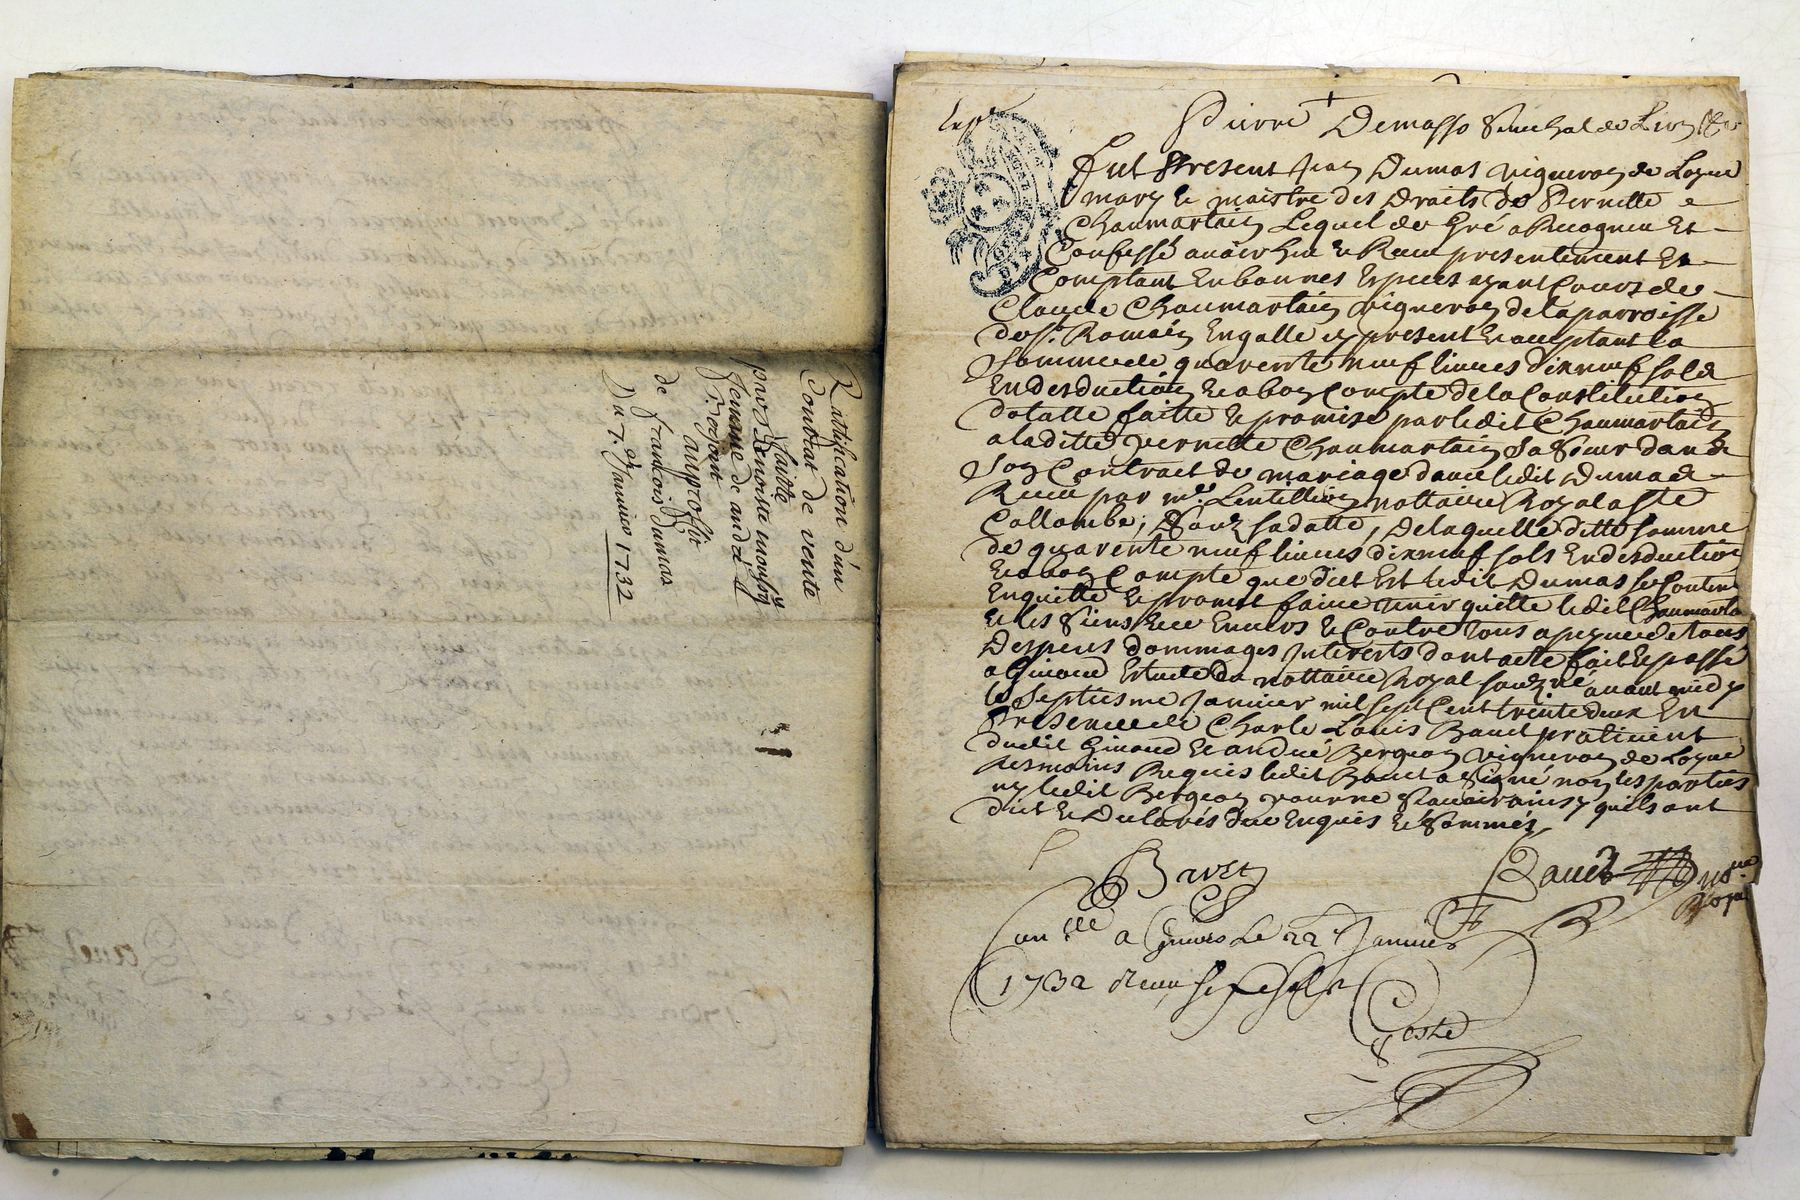 Rattification d'un
Contrat de vente
faitte
par Benoiste mousson
femme de andré
auproffit
de francois dumas
Du 7e Janvier 1732
Pierre Demasso Senechal de Lion &
fut Present Jean Dumas vigneron de Loyre
mary & maistre des Droits de Pernette
Chaumartain Lequel de Gré a Recognu Et
Confessé avoir heu & Receu presentement Et
Comptant En bonnes Especes ayant Cours de
Claude Chaumartain vigneron de la parroisse
de St. Romain Engalle cy present & acceptant la
Somme de quarente neuf livres dixneuf sols
En desduction & a bon Compte de la Constitution
dotalle faitte & promise par ledit Chaumartain
a laditte Pernette Chaumartain Sa Sœur dans
Son Contract de mariage avec ledit Dumas
Receu par me. Lentillion nottaire Royal a Ste
Collombe, Souz sa datte, De laquelle ditte somme
de quarente neuf livres dixneuf sols En desduction
& a bon Compte que dict Est ledit Dumas Se Contente
Enquitte & promet faire tenir quitte ledit Chaumartain
& les Siens Envers & Contre tous a peyne de tous
Despens dommages Interests dont acte fait & passé
a Givord Estude du nottaire Royal souzné avant midy
le Septiesme Janvier mil sept Cent trente deux En
Presence de Charle Louis Bavet praticient
dudit Givord & andré Bergeon vigneron de Loyre
tesmoins Requis ledit Bavet a Signé non les parties
ny ledit Bergeon pour ne Scavoir ainsy quils ont
dict & Declarés de ce Enquis & Sommés
Bavet
Bavet nore.
Royal
Conllé a Givors Le 22e Janvier
1732 Receu
Coste